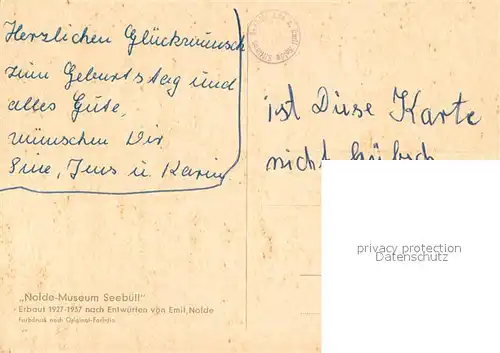 Herzlichen Glückwunsch
zum Geburtstag und
alles Gute,
wünschen Dir
Sine, Jens u. Karin
ist Diese Karte
nicht hübsch
privacy protection
Datenschutz
„Nolde-Museum Seebüll"
Erbaut 1927-1937 nach Entwürfen von Emil Nolde
Farbdruck nach Original-Farbdia